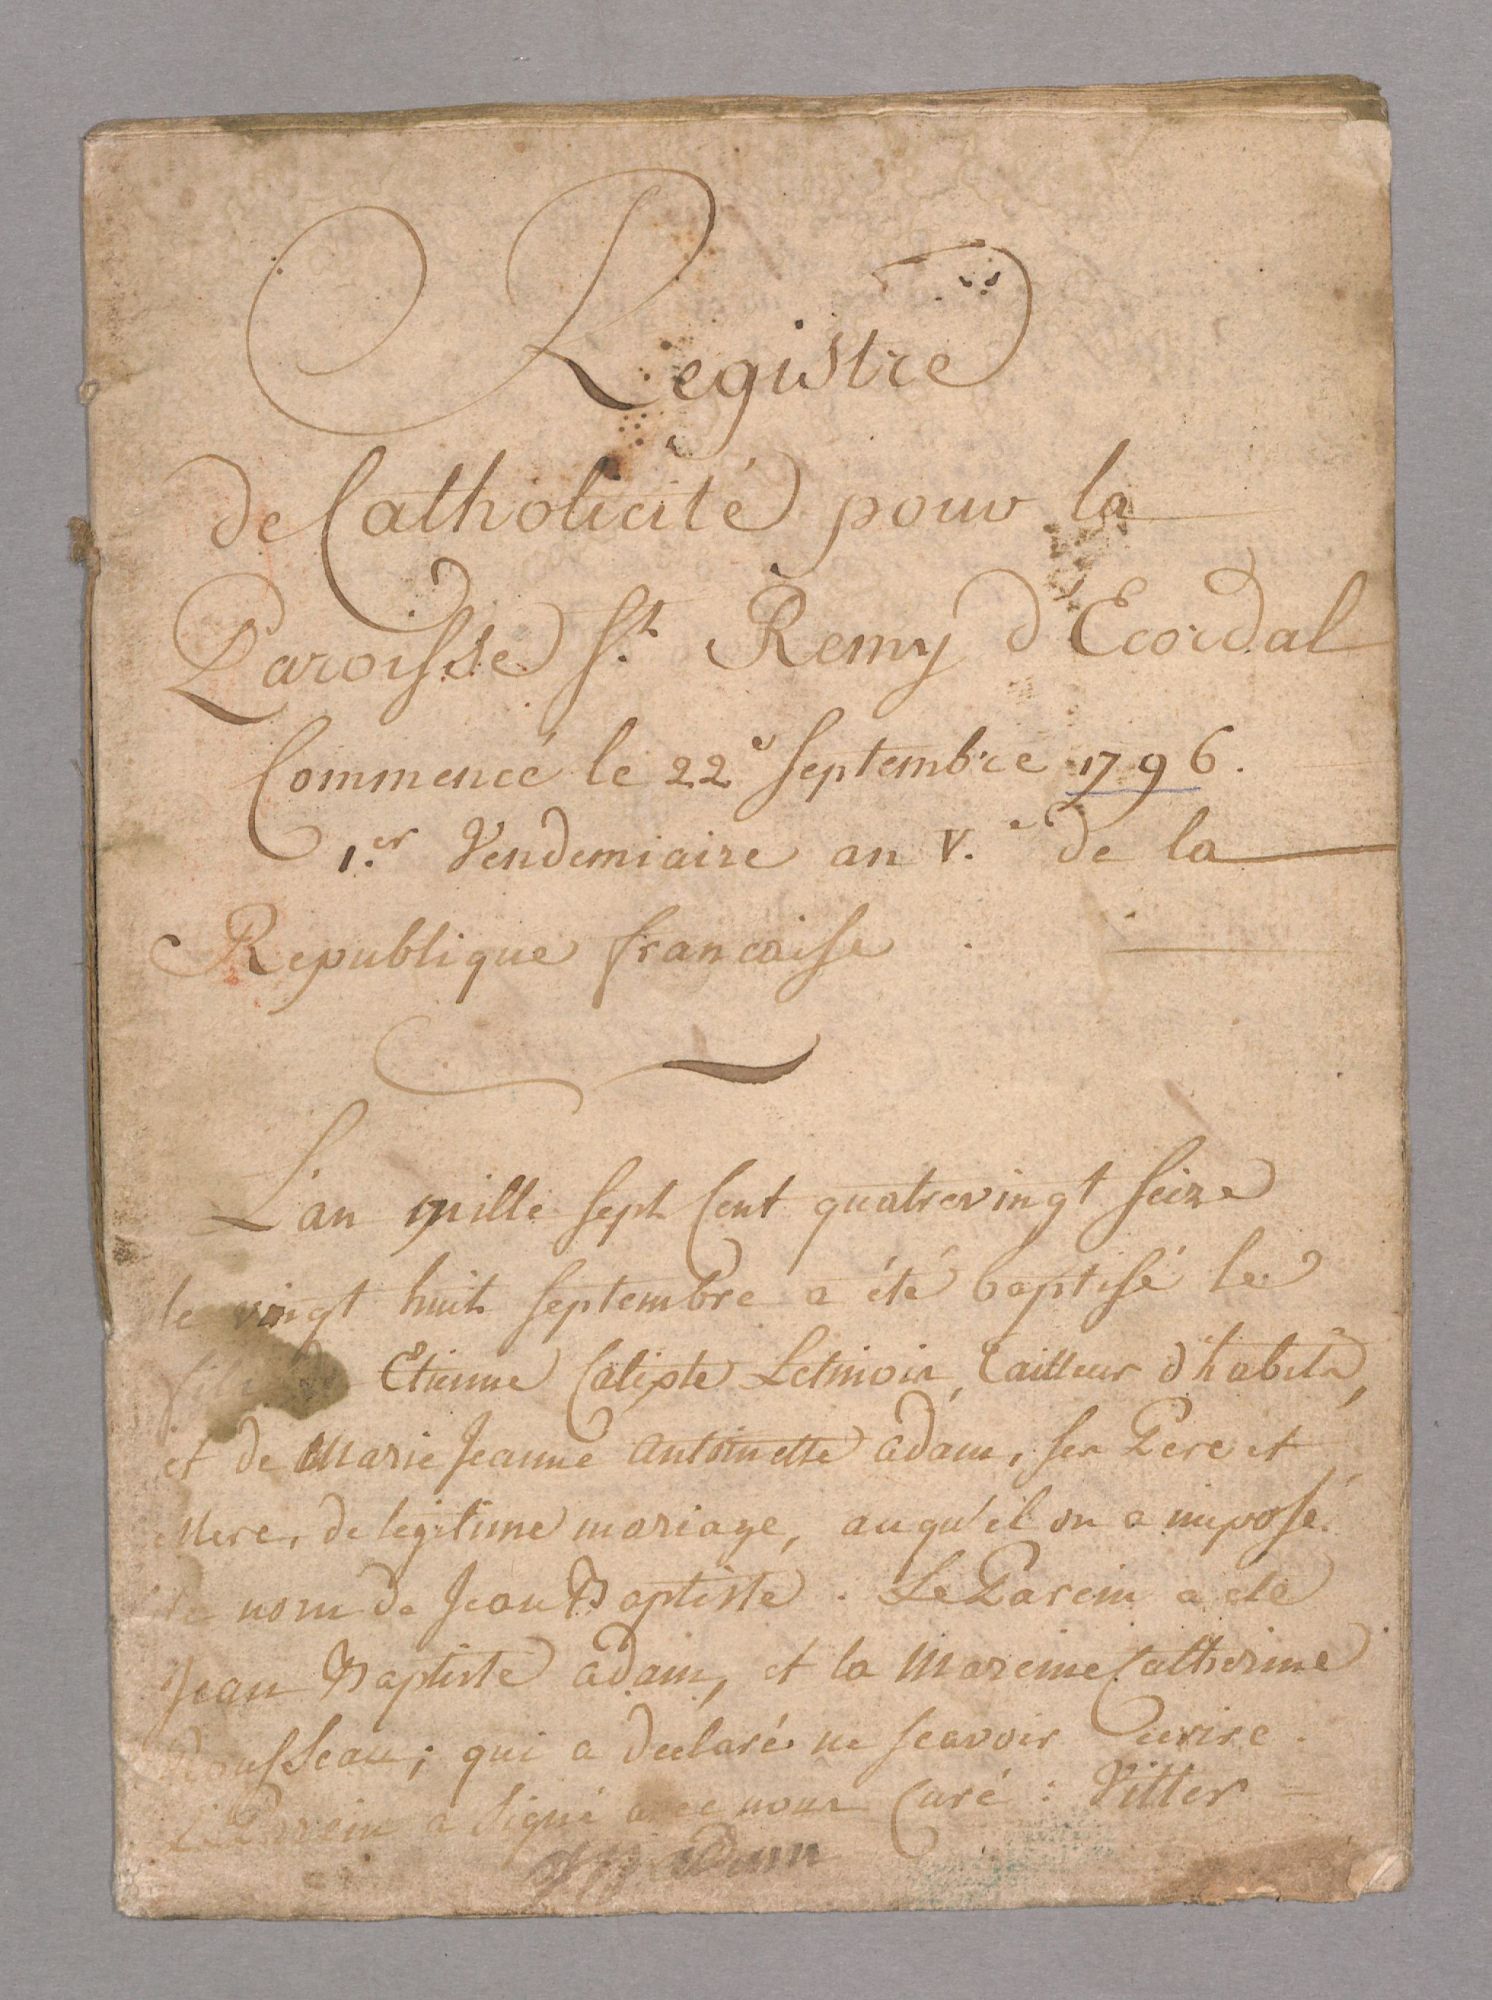 Registre
de Catholicité pour la
Paroisse St. Remy d'Ecordal
Commencé le 22e septembre 1796.
1.er Vendemiaire an V.e de la
Republique francaise
L'an mille sept Cent quatrevingt seize
le vingt huit septembre a été baptisé le
fils de Etienne Calixte Letinoir, Tailleur d'habits,
et de Marie Jeanne antoinette adam, ses Pere et
Mere, de legitime mariage, auqu'el on a imposé
le nom de Jean Baptiste. Le Parein a été
Jean Baptiste adam, et la Mareine Catherine
Rousseau; qui a declaré ne scavoir ecrire.
Le Parein a signé avec nous Curé : Vitter
JB adam